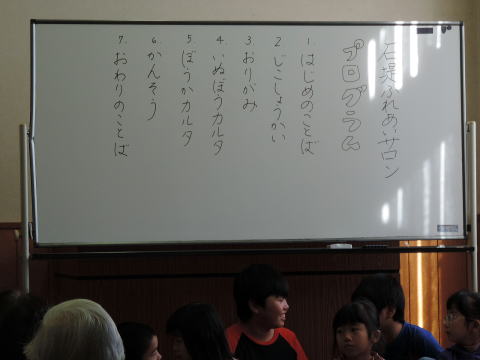 石堤ふれあいサロン
プログラム
1. はじめのことば
2 じこしょうかい
3. おりがみ
4. いぬぼうカルタ
5 ぼうかカルタ
6. かんそう
7. おわりのことば